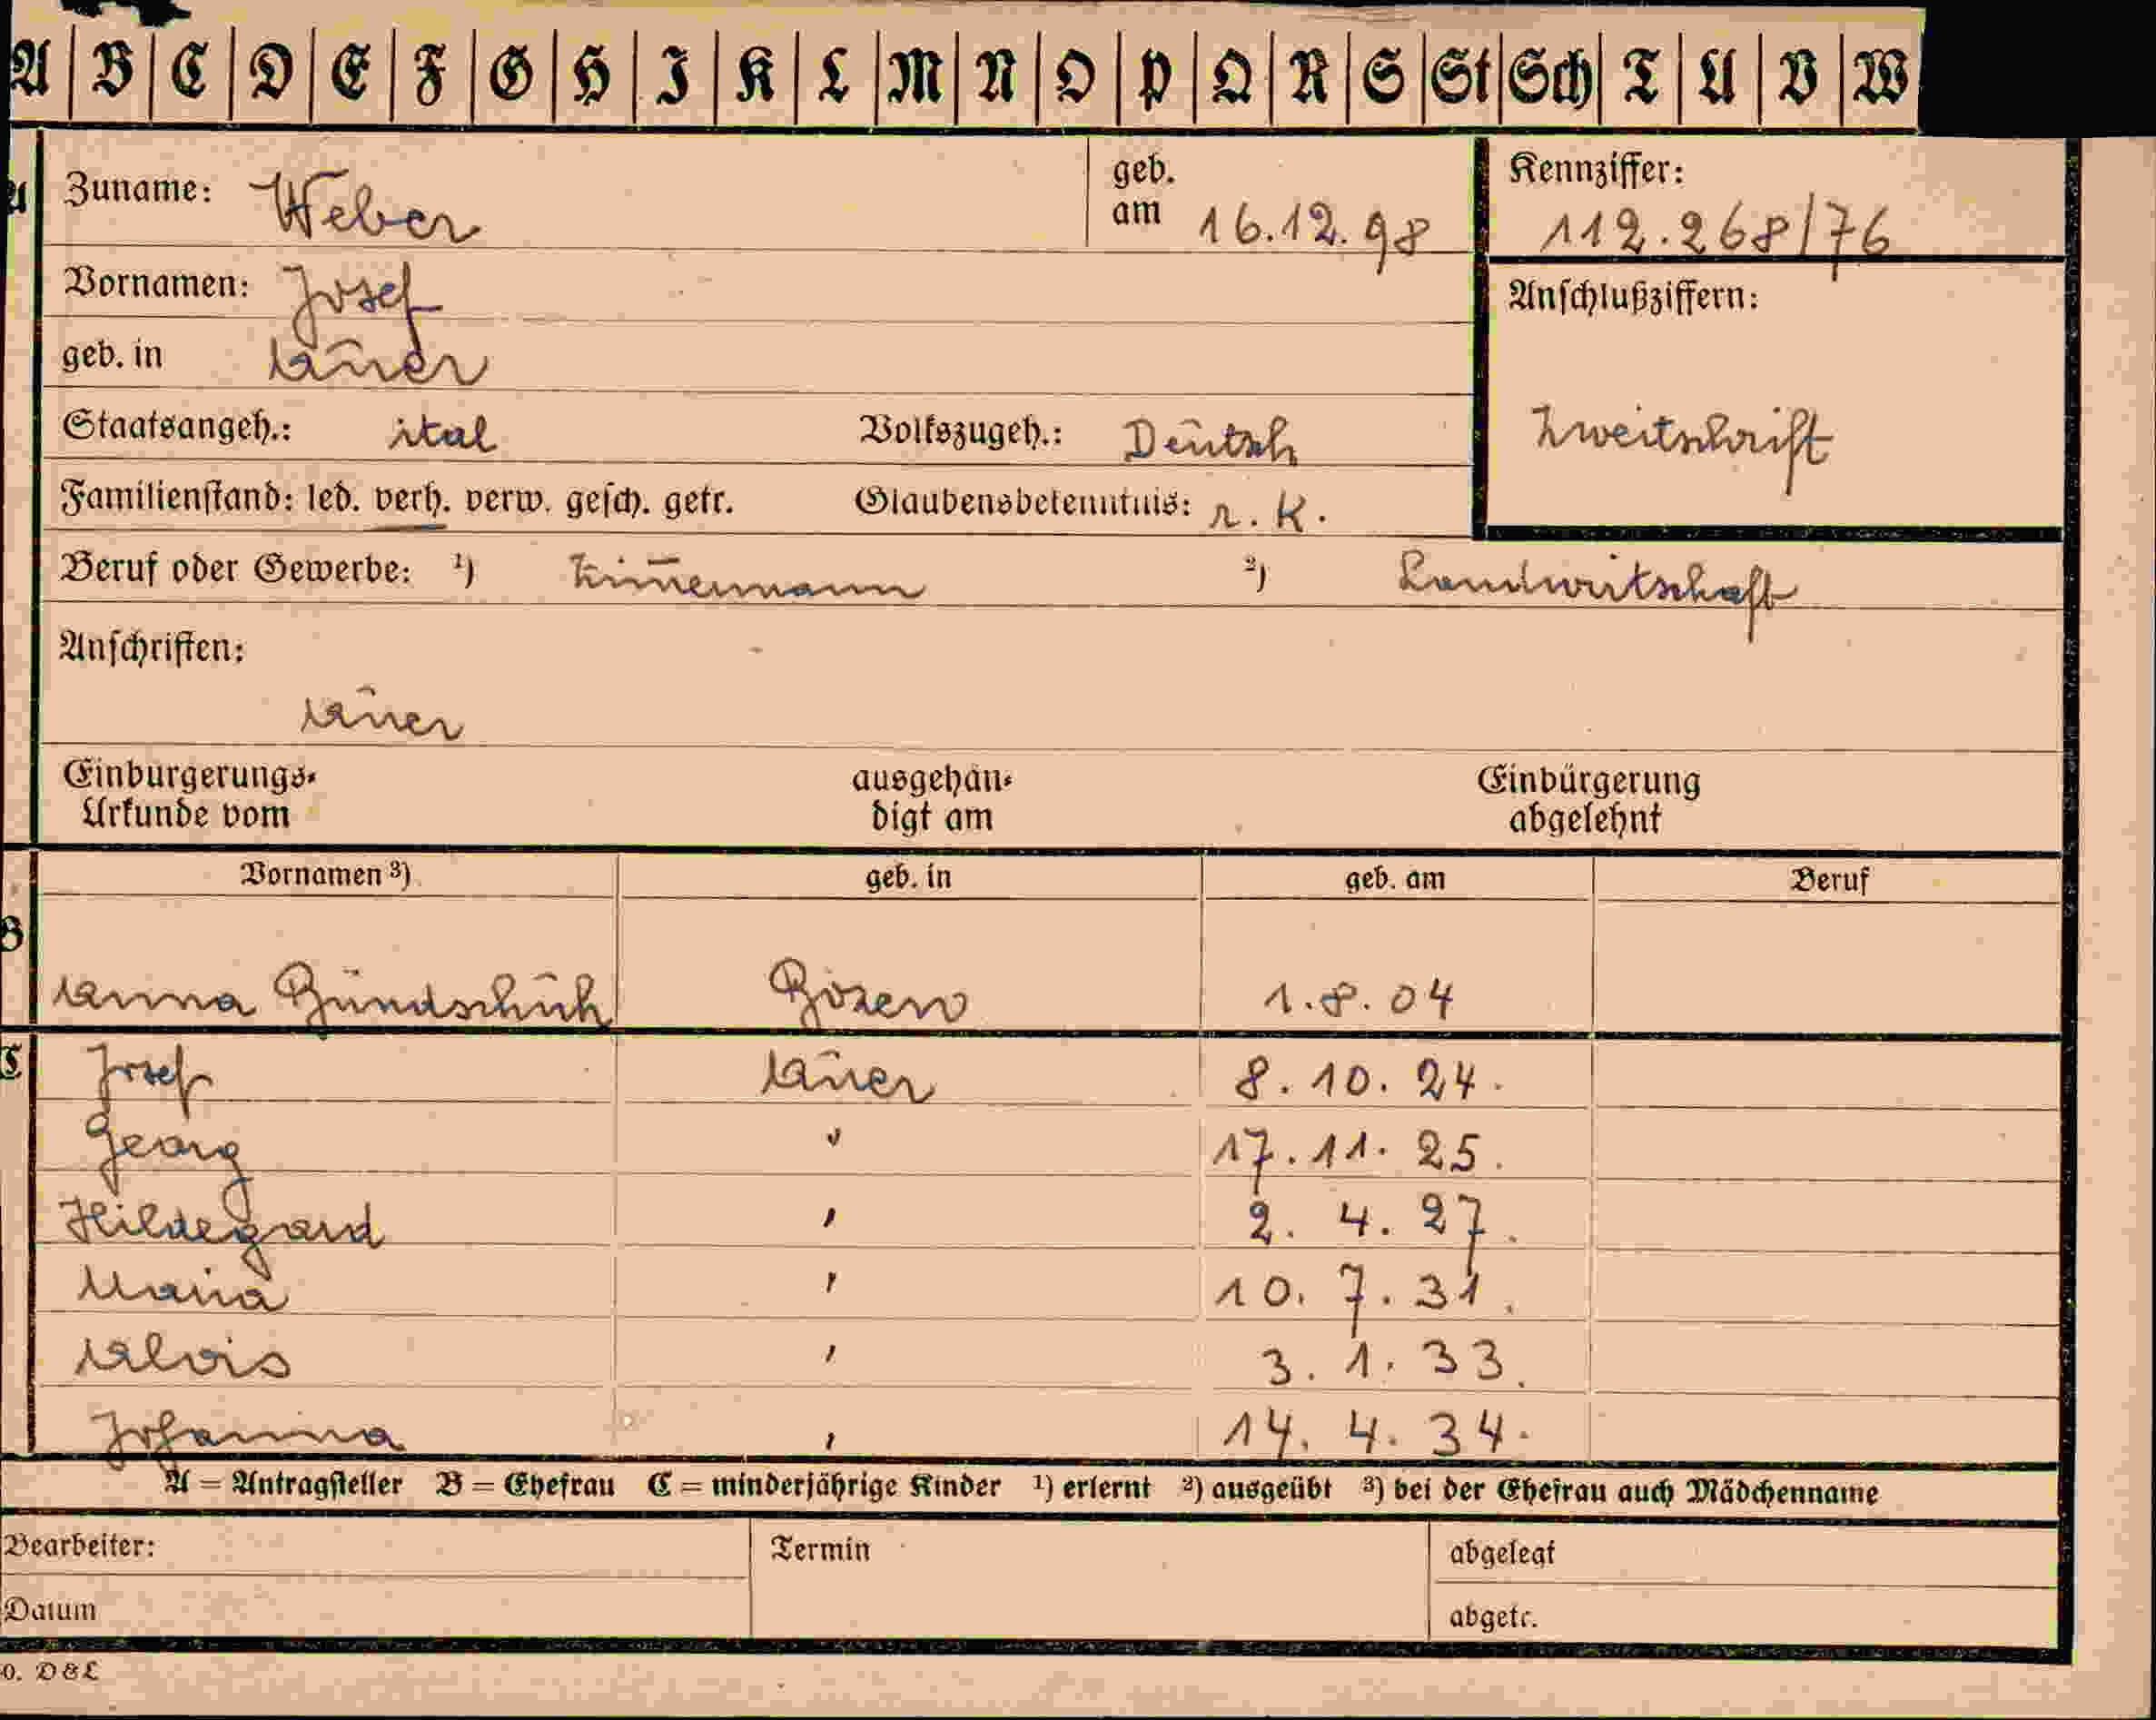 A B C D E F G H I K L M N O P Q R S St Sch T U V W
A Zuname: Weber geb. am 16.12.98 Kennziffer: 112.268/76
Vornamen: Josef Anschlußziffern:
geb. in Auer
Staatsangeh.: ital Volkszugeh.: Deutsch Zweitschrift
Familienstand: led. verh. verw. gesch. getr. Glaubensbekenntnis: r. K.
Beruf oder Gewerbe: ¹) Zim̄ermann ²) Landwirtschaft
Anschriften:
Auer
Einbürgerungs- ausgehän- Einbürgerung
Urkunde vom digt am abgelehnt
Vornamen ³) geb. in geb. am Beruf
B
Anna Bundschuh Bozen 1.8.04
C Josef Auer 8. 10. 24.
Georg " 17. 11. 25.
Hildegard " 2. 4. 27.
Maria " 10. 7. 31.
Alois " 3. 1. 33.
Johanna " 14. 4. 34.
A = Antragsteller B = Ehefrau C = minderjährige Kinder ¹) erlernt ²) ausgeübt ³) bei der Ehefrau auch Mädchenname
Bearbeiter: Termin abgelegt
Datum abgetr.
O. D & L